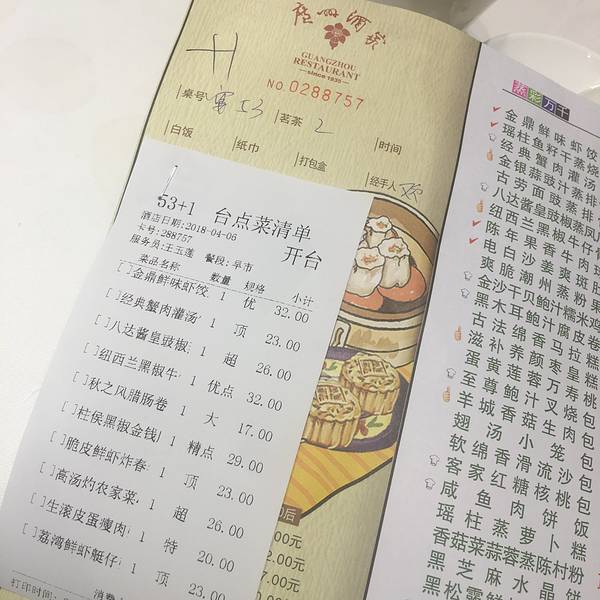 广州酒家
GUANGZHOU
RESTAURANT
since1935
NO.0288757
桌号
茗茶 2
时间
白饭
纸巾
打包盒
经手人
53+1 台点菜清单
酒店日期:2018-04-06 开台
卡号:288757
服务员:王玉莲 餐段:早市
菜品名称 数量 规格 小计
[]金鼎鲜味虾饺 1 优 32.00
[]经典蟹肉灌汤 1 顶 23.00
[]八达酱皇豉椒 1 超 26.00
[]纽西兰黑椒牛 1 优点 32.00
[]秋之风腊肠卷 1 大 17.00
[]柱侯黑椒金钱 1 精点 29.00
[]脆皮鲜虾炸春 1 顶 23.00
[]高汤灼农家菜 1 超 26.00
[]生滚皮蛋瘦肉 1 特 20.00
[]荔湾鲜虾艇仔 1 顶 23.00
打印时间:
消费
后
00元
2.00元
7.00元
.00元
蒸彩万千
金鼎鲜味虾饺
瑶柱鱼籽干蒸烧
经典蟹肉灌汤
金银蒜豉汁蒸排
古劳面豉蒸排
八达酱皇豉椒蒸凤
纽西兰黑椒牛仔
陈年果香牛肉
电白沙姜爽斑
爽脆潮州蒸粉果
金沙干贝鲍汁糯米鸡
黑木耳鲍汁腐皮卷
古法绵香马拉糕
滋补养颜枣皇糕
蛋黄莲蓉万寿桃
至尊鲍汁叉烧包
羊城香菇生肉包
翅汤小笼包
软绵香滑流沙包
客家红糖核桃包
咸鱼肉饼饭
瑶柱蒸萝卜糕
香菇菜蒜蓉蒸陈村粉
黑芝麻水晶饼
黑松露鲜